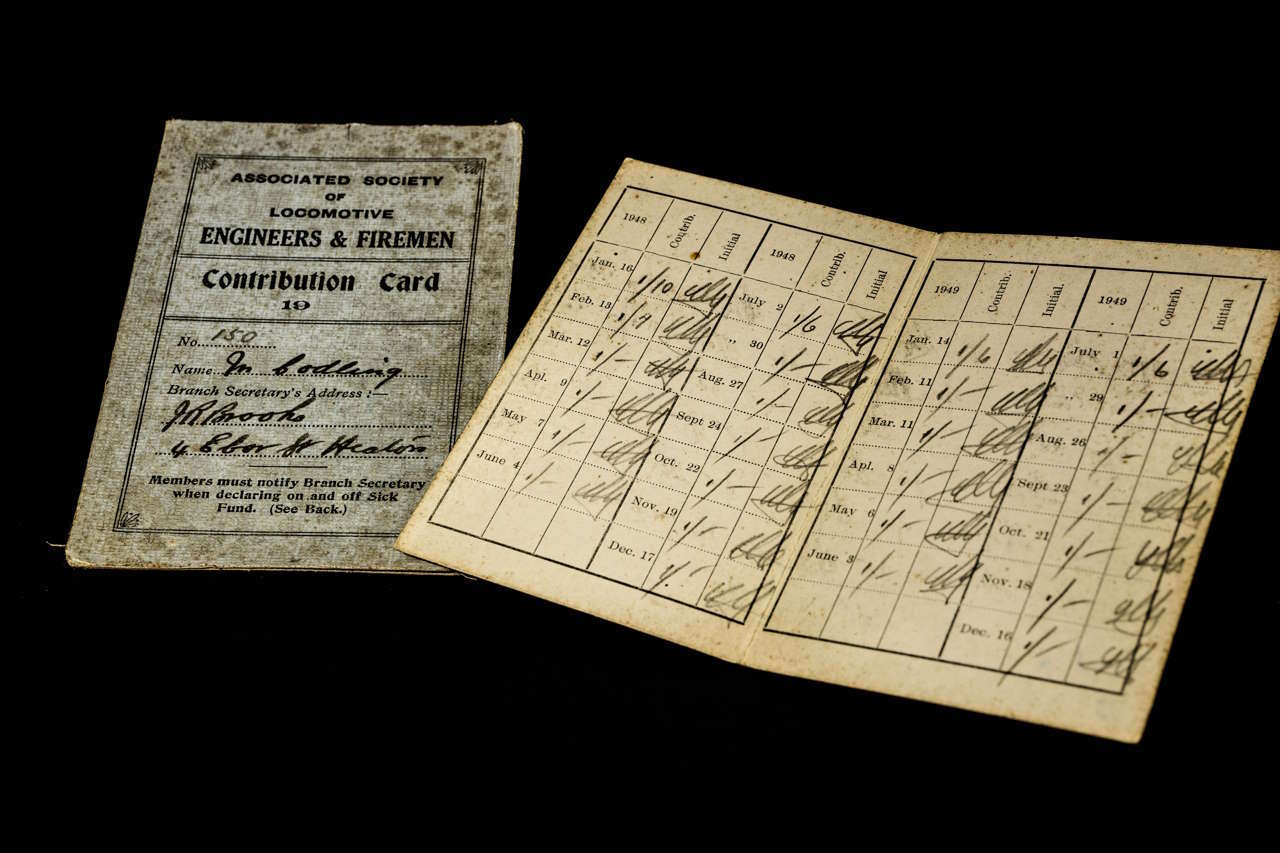 ASSOCIATED SOCIETY
OF
LOCOMOTIVE
ENGINEERS & FIREMEN
Contribution Card
19
No. 150
Name Codling
Branch Secretary's Address :—
J R Brooks
4 Ebor St Heaton
Members must notify Branch Secretary
when declaring on and off Sick
Fund. (See Back.)
1948 Contrib. Initial 1948 Contrib. Initial
Jan. 16 1/10 July 2 1/6
Feb. 13 „ 30 1/-
Mar. 12 1/- Aug. 27 1/-
Apl. 9 1/- Sept 24 1/-
May 7 1/- Oct. 22 1/-
June 4 1/- Nov. 19 1/-
Dec. 17 1/-
1949 Contrib. Initial. 1949 Contrib. Initial
Jan. 14 1/6 July 1 1/6
Feb. 11 1/- „ 29 1/-
Mar. 11 1/- Aug. 26 1/-
Apl. 8 1/- Sept 23 1/-
May 6 1/- Oct. 21 1/-
June 3 1/- Nov. 18 1/-
Dec. 16 1/-